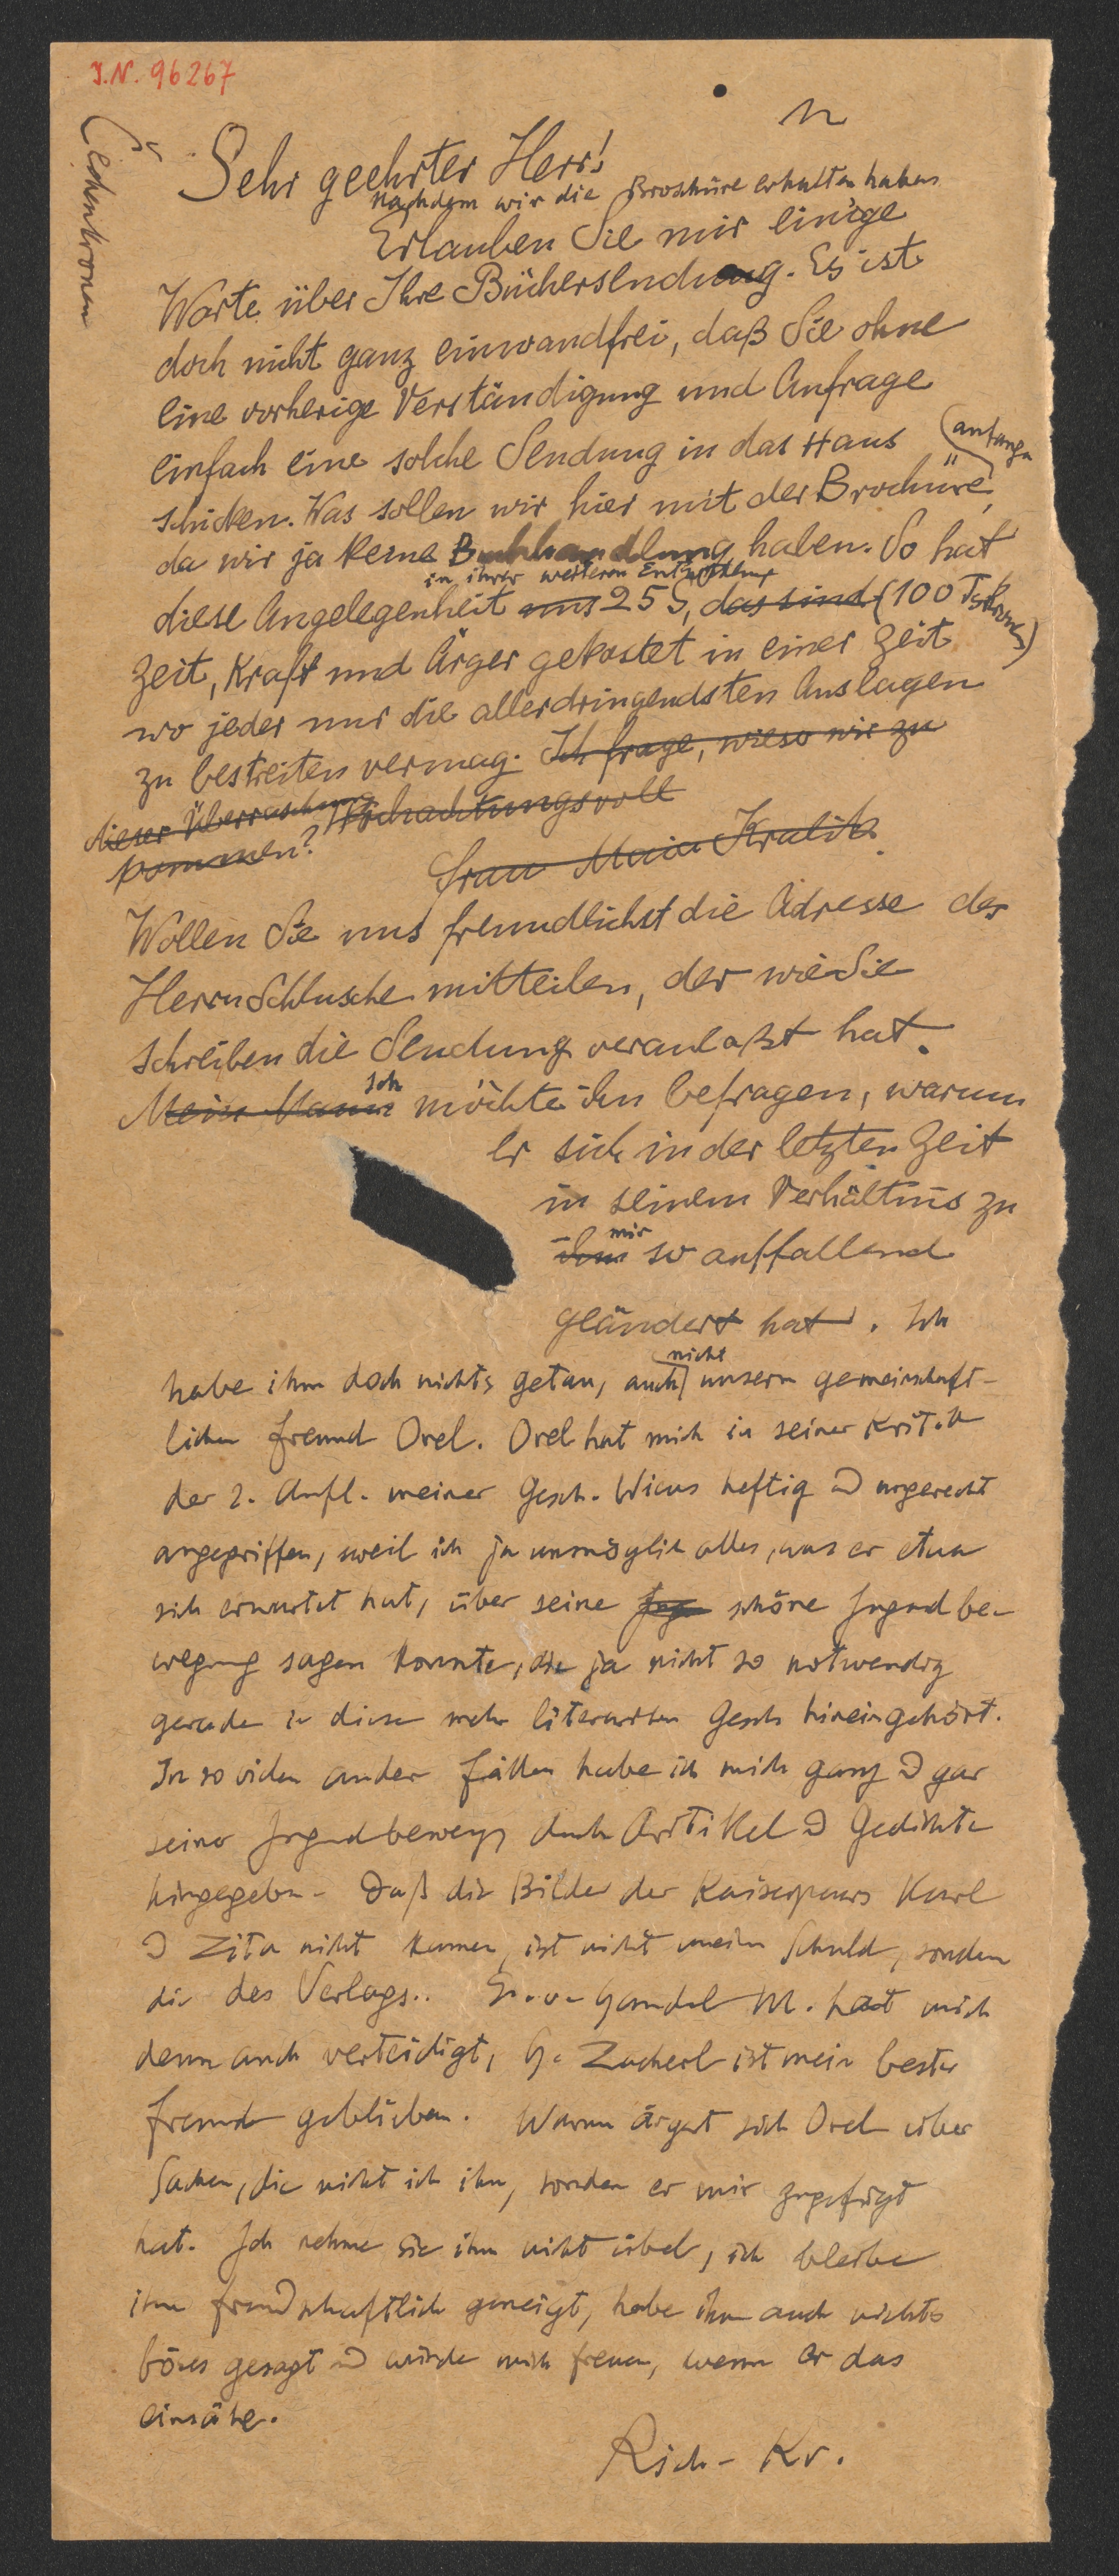 I.N. 96267
Sehr geehrter Herr!
nachdem wir die Broschüre erhalten haben
Erlauben Sie mir einige
Worte über Ihre Büchersendung. Es ist
doch nicht ganz einwandfrei, daß Sie ohne
eine vorherige Verständigung und Anfrage
einfach eine solche Sendung in das Haus
schicken. Was sollen wir hier mit der Brochüre
anfangen
da wir ja keine Buchhandlung haben. So hat
in ihrer weiteren
diese Angelegenheit uns 25 S, das sind (100 Tskronen)
Zeit, Kraft und Ärger gekostet in einer Zeit
wo jeder nur die allerdringendsten Auslagen
zu bestreiten vermag. Ich frage, wieso wir zu
dieser Überraschung Hochachtungsvoll
kommen?
Frau Maria Kralik.
Wollen Sie uns freundlichst die Adresse des
Herrn Schlusche mitteilen, der wie Sie
schreiben die Sendung veranlaßt hat.
Ich
Mein Mann möchte ihn befragen, warum
er sich in der letzten Zeit
in seinem Verhältnis zu
mir
ihm so auffallend
geändert hat. Ich
nicht
habe ihm doch nichts getan, auch unserm gemeinschaft-
lichen Freund Orel. Orel hat mich in seiner Kritik
der 2. Aufl. meiner Gesch. Wiens heftig u ungerecht
angegriffen, weil ich ja unmöglich alles, was er etwa
sich erwartet hat, über seine Jug schöne Jugendbe-
wegung sagen konnte, die ja nicht so notwendig
gerade in diese mehr literarischen Gesch hineingehört.
In so vielen ander Fällen habe ich mich ganz u gar
seiner Jugendbewegg durch Artikel u Gedichte
hingegeben. Daß die Bilder der Kaiserpaars Karl
u Zita nicht kamen, ist nicht meine Schuld, sondern
die des Verlags.. M. hat mich
denn auch verteidigt, H. Zacherl ist mein bester
Freund geblieben. Warum ärgert sich Orel über
Sachen, die nicht ich ihm, sondern er mir zugefügt
hat. Ich nehme sie ihm nicht übel, ich bleibe
ihm freundschaftlich geneigt, habe ihm auch nichts
böses gesagt u würde mich freuen, wenn er das
einsähe.
Rich. Kr.